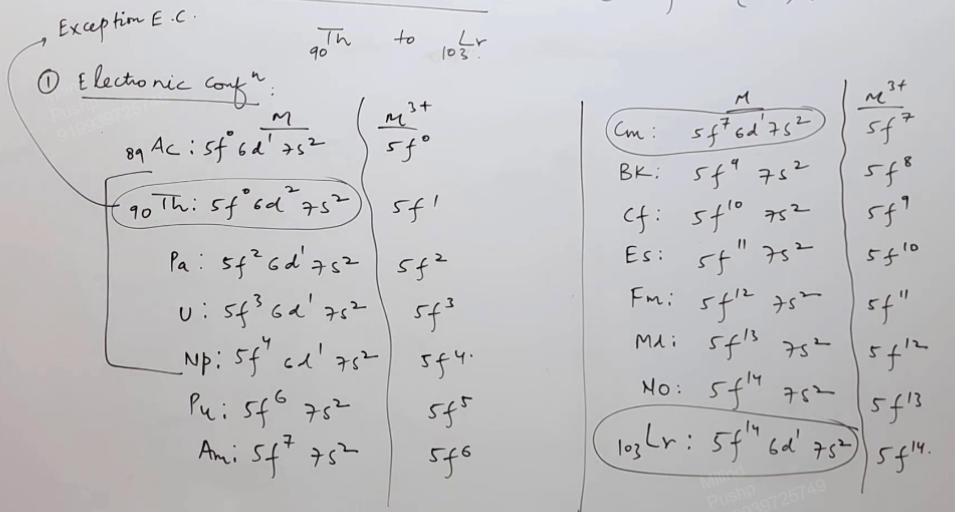 Exception E.C.
₉₀Th to ₁₀₃Lr
① Electronic confⁿ:
M M³⁺
₈₉Ac: 5f⁰ 6d¹ 7s² 5f⁰
₉₀Th: 5f⁰ 6d² 7s² 5f¹
Pa: 5f² 6d¹ 7s² 5f²
U: 5f³ 6d¹ 7s² 5f³
Np: 5f⁴ 6d¹ 7s² 5f⁴.
Pu: 5f⁶ 7s² 5f⁵
Am: 5f⁷ 7s² 5f⁶
M M³⁺
Cm: 5f⁷ 6d¹ 7s² 5f⁷
BK: 5f⁹ 7s² 5f⁸
Cf: 5f¹⁰ 7s² 5f⁹
Es: 5f¹¹ 7s² 5f¹⁰
Fm: 5f¹² 7s² 5f¹¹
Md: 5f¹³ 7s² 5f¹²
NO: 5f¹⁴ 7s² 5f¹³
₁₀₃Lr: 5f¹⁴ 6d¹ 7s² 5f¹⁴.